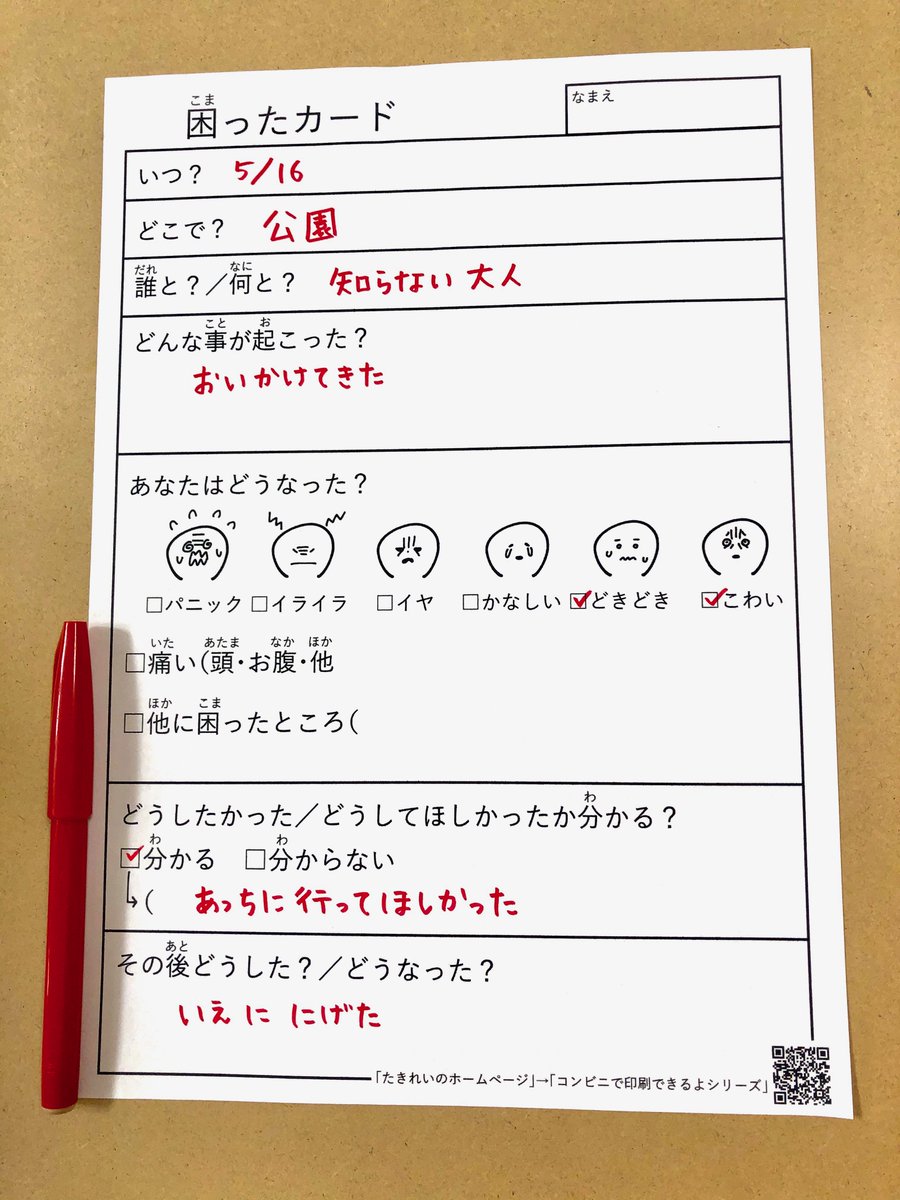 困ったカード
なまえ
いつ? 5/16
どこで? 公園
誰と?/何と? 知らない大人
どんな事が起こった?
おいかけてきた
あなたはどうなった?
□パニック □イライラ □イヤ □かなしい ☑どきどき ☑こわい
□痛い(頭・お腹・他
□他に困ったところ(
どうしたかった/どうしてほしかったか分かる?
☑分かる □分からない
↳( あっちに行ってほしかった
その後どうした?/どうなった?
いえに にげた
「たきれいのホームページ」→「コンビニで印刷できるよシリーズ」